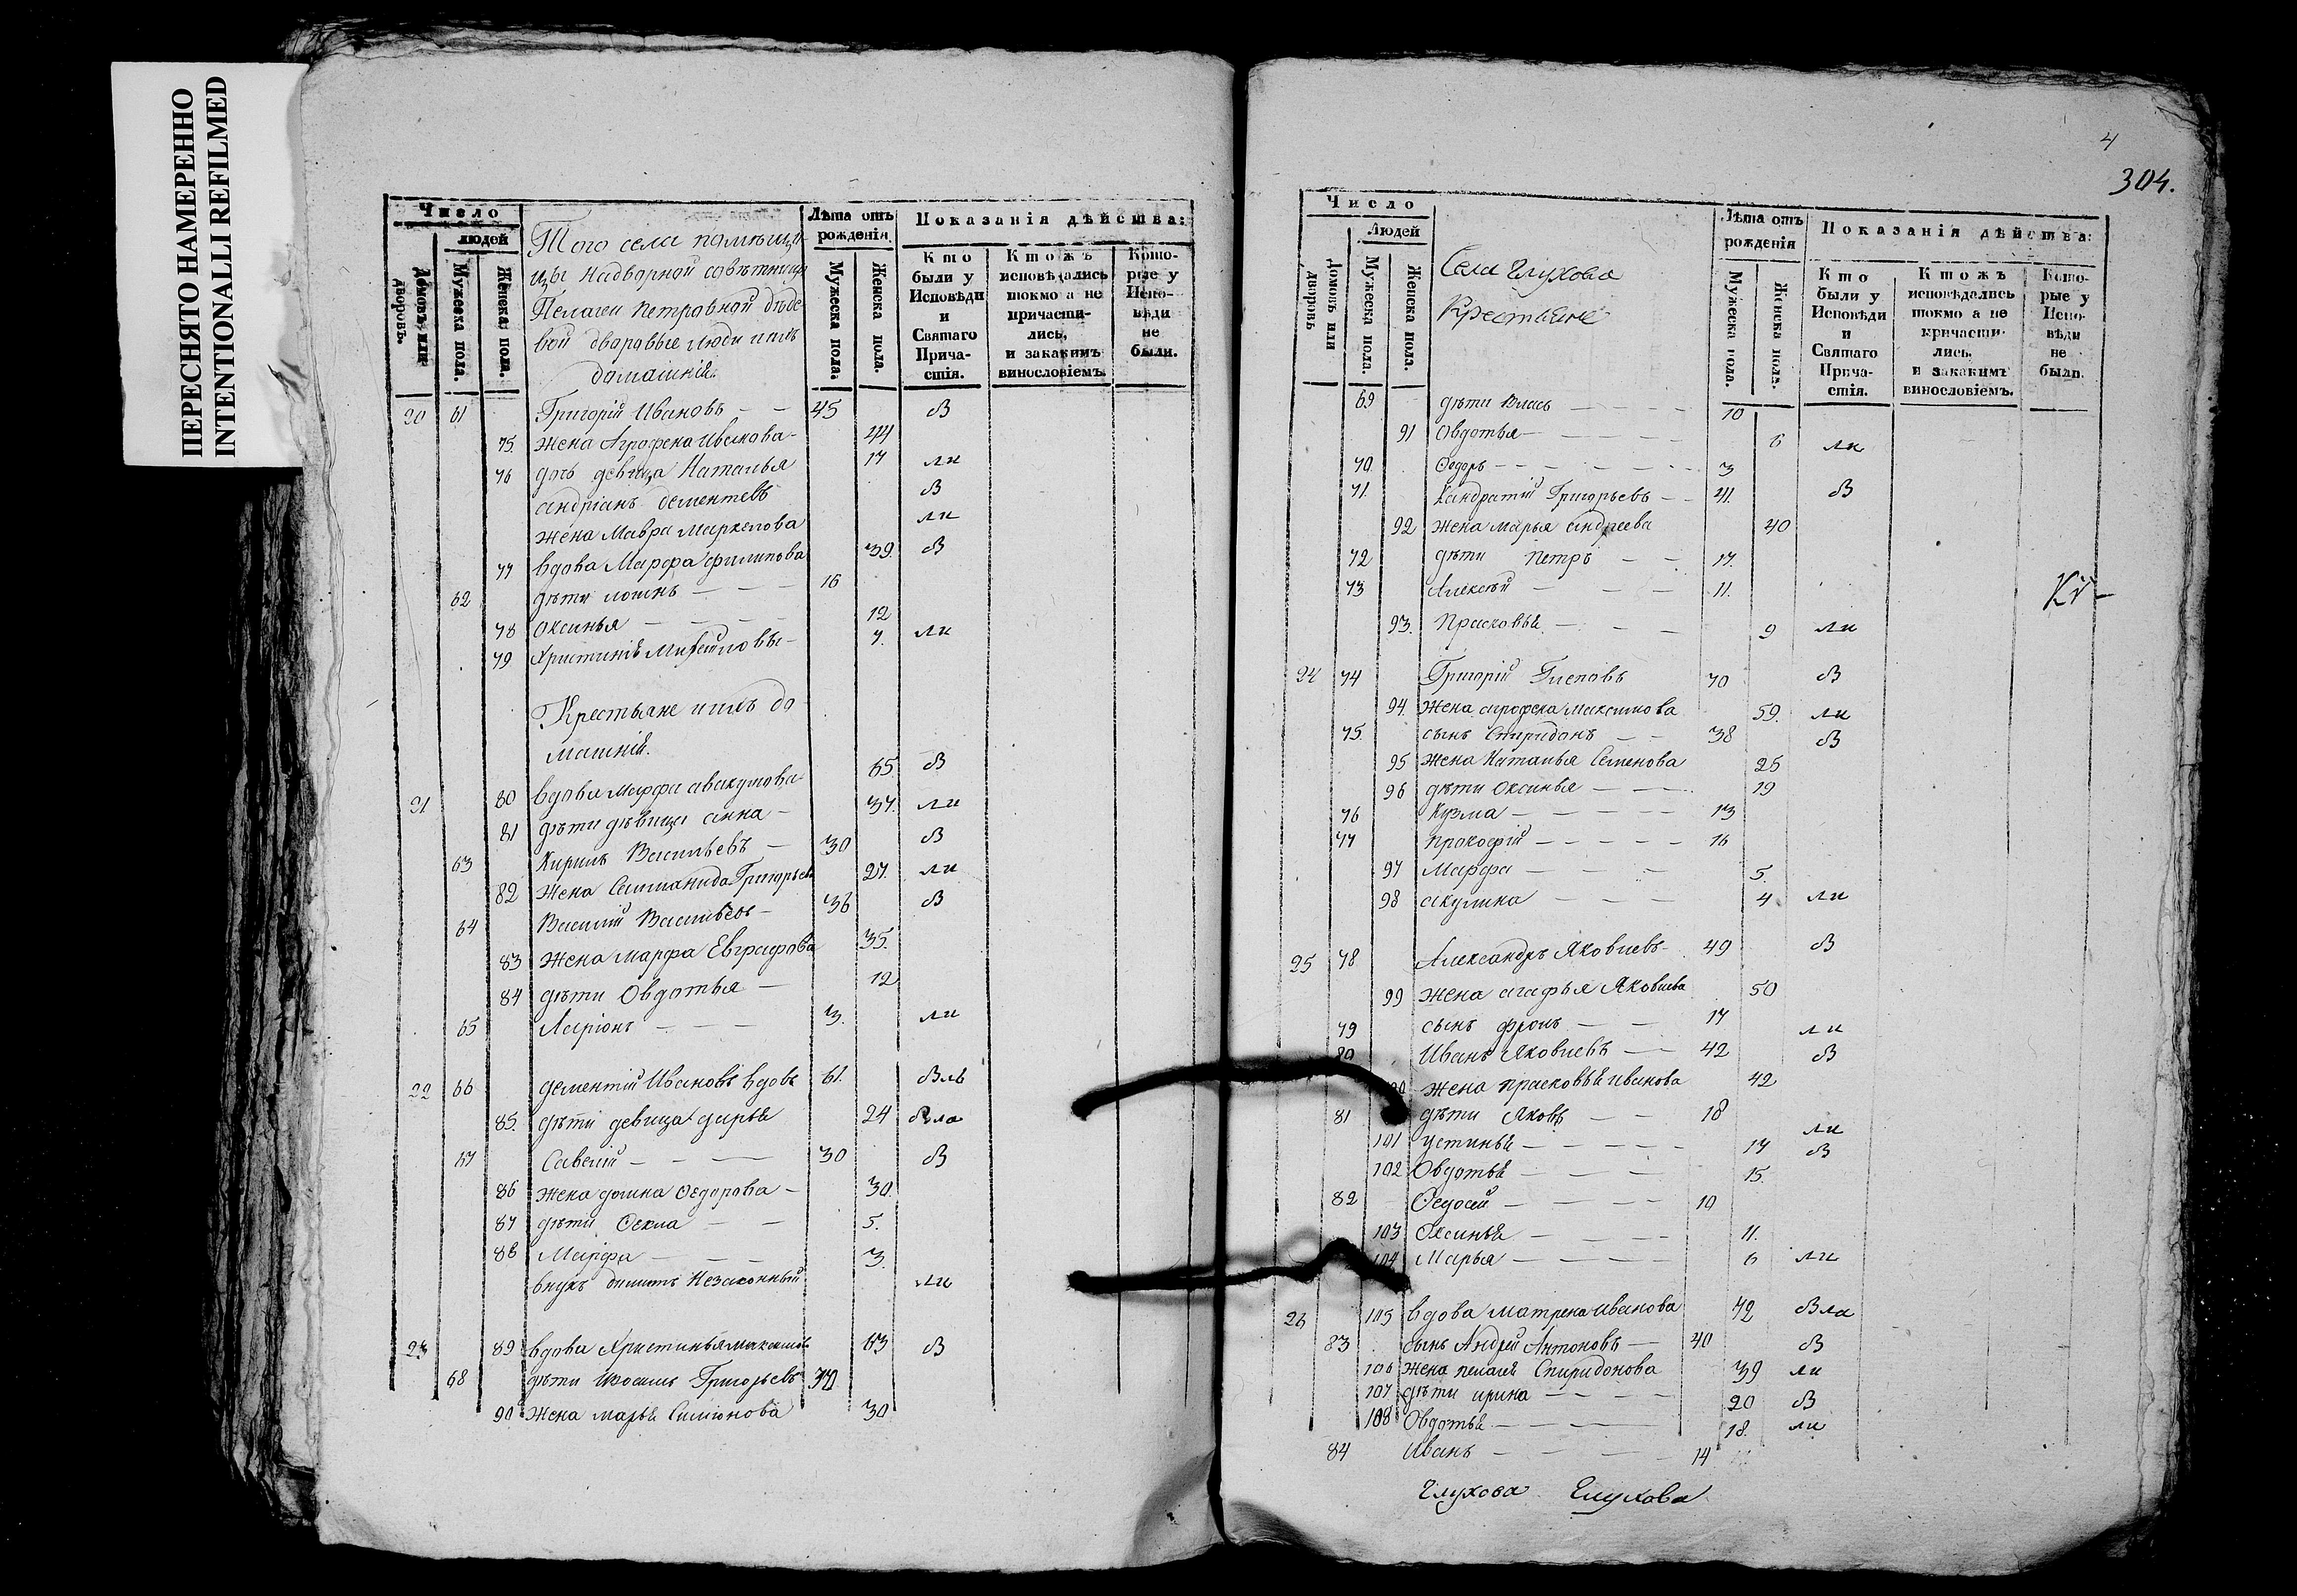 ПЕРЕСНЯТО НАМЕРЕННО
INTENTIONALLI REFILMED
Число
людей
Домовъ или дворовъ.
Мужеска пола.
Женска пола.
Того села помѣщи-
цы Надворной совѣтницы
Пелагеи Петровной
вой дворовые люди ихъ
домашнія
Лѣта отъ рожденія
Мужеска пола.
Женска пола.
Показанія дѣйства:
Кто были у Исповѣди и Святаго Причастія.
Ктожъ исповѣдались токмо а не причастились, и закакимъ винословіемъ.
Которые у Исповѣди не были.
20 61 Григорій Ивановъ — — 45 В
75. жена Агрофена Иванова - 44
76 дочь девица Наталья 17 ли
андріанъ дементевъ В
жена Мавра Маркелова ли
77 вдова Марфа филипова 39. В
62 дѣти — — 16
78 Оксинья — — — 12
79 Христинія 7. ли
Крестьяне ихъ до
машнія.
21 80 вдова Марфа авакумова 65 В
81 дѣти дѣвица анна — 37. ли
63 Кирилъ Васильевъ — 30 В
82 жена Григорьева 27. ли
64 Василій Васильевъ — 36 В
83 жена марфа Евграфова 35.
84 дѣти Овдотья — 12
65 Ларіонъ — — — 3. ли
22 66 дементій Ивановъ вдовъ 61. Влъ
85. дѣти девица дарья 24 Вла
67 Савелій — — — 30 В
86 жена домна Ѳедорова — 30.
87 дѣти Ѳекла — — 5.
88 Марфа — — — 3.
внукъ Незаконный ли
23 89 вдова Христинья максимова 63 В
68 дѣти Григорьевъ
90 жена марья Симіонова 30
4
304.
Число
Людей
Домовъ или дворовъ
Мужеска пола.
Женска пола.
Села Глухова
Крестьяне
Лѣта отъ рожденія
Мужеска пола.
Женска пола.
Показанія дѣйства:
Кто были у Исповѣди и Святаго Причастія.
Ктожъ исповѣдались токмо а не причастились, и закакимъ винословіемъ.
Которые у Исповѣди не были.
69 дѣти Власъ — — — — 10
91 Овдотья — — — — — 6 ли
70 Ѳедоръ — — — — — 3
71. Кандратій Григорьевъ — — 41. В
92 жена марья андреева 40
72 дѣти Петръ — — 17.
73 Алексѣй — — — 11.
93. Прасковья — — — 9 ли
24 74 Григорій Глеповъ 70 В
94. жена агрофена Максимова 59. ли
75. сынъ Спиридонъ — — 38 В
95 жена Наталья Семенова 25
96 дѣти Оксинья — — — 19
76 Кузма — — — — — 13
77 прокофій — — — — — 16
97 Марфа — — — — 5.
98 акулина — — — 4 ли
25 78 Александръ Яковлевъ — 49 В
99 жена агафья Яковлева 50
79 сынъ фролъ — — 17 ли
80 Иванъ Яковлевъ — — 42 В
жена прасковья иванова 42
81 дѣти Яковъ — — 18 ли
101 устинья — — — — — 17 В
102 Овдотья — — — — 15.
82 Ѳедосей — — — — 10
103 Оксинья — — — — 11.
104 Марья — — — — — 6 ли
26 105 вдова матрена иванова 72 Вла
83 сынъ Андрей Антоновъ — 40 В
106 жена пелагея Спиридонова 39 ли
107 дѣти ирина — — — — 20 В
108 Овдотья — — — — 18. ли
84 Иванъ — — — — 14
Глухова Глухова